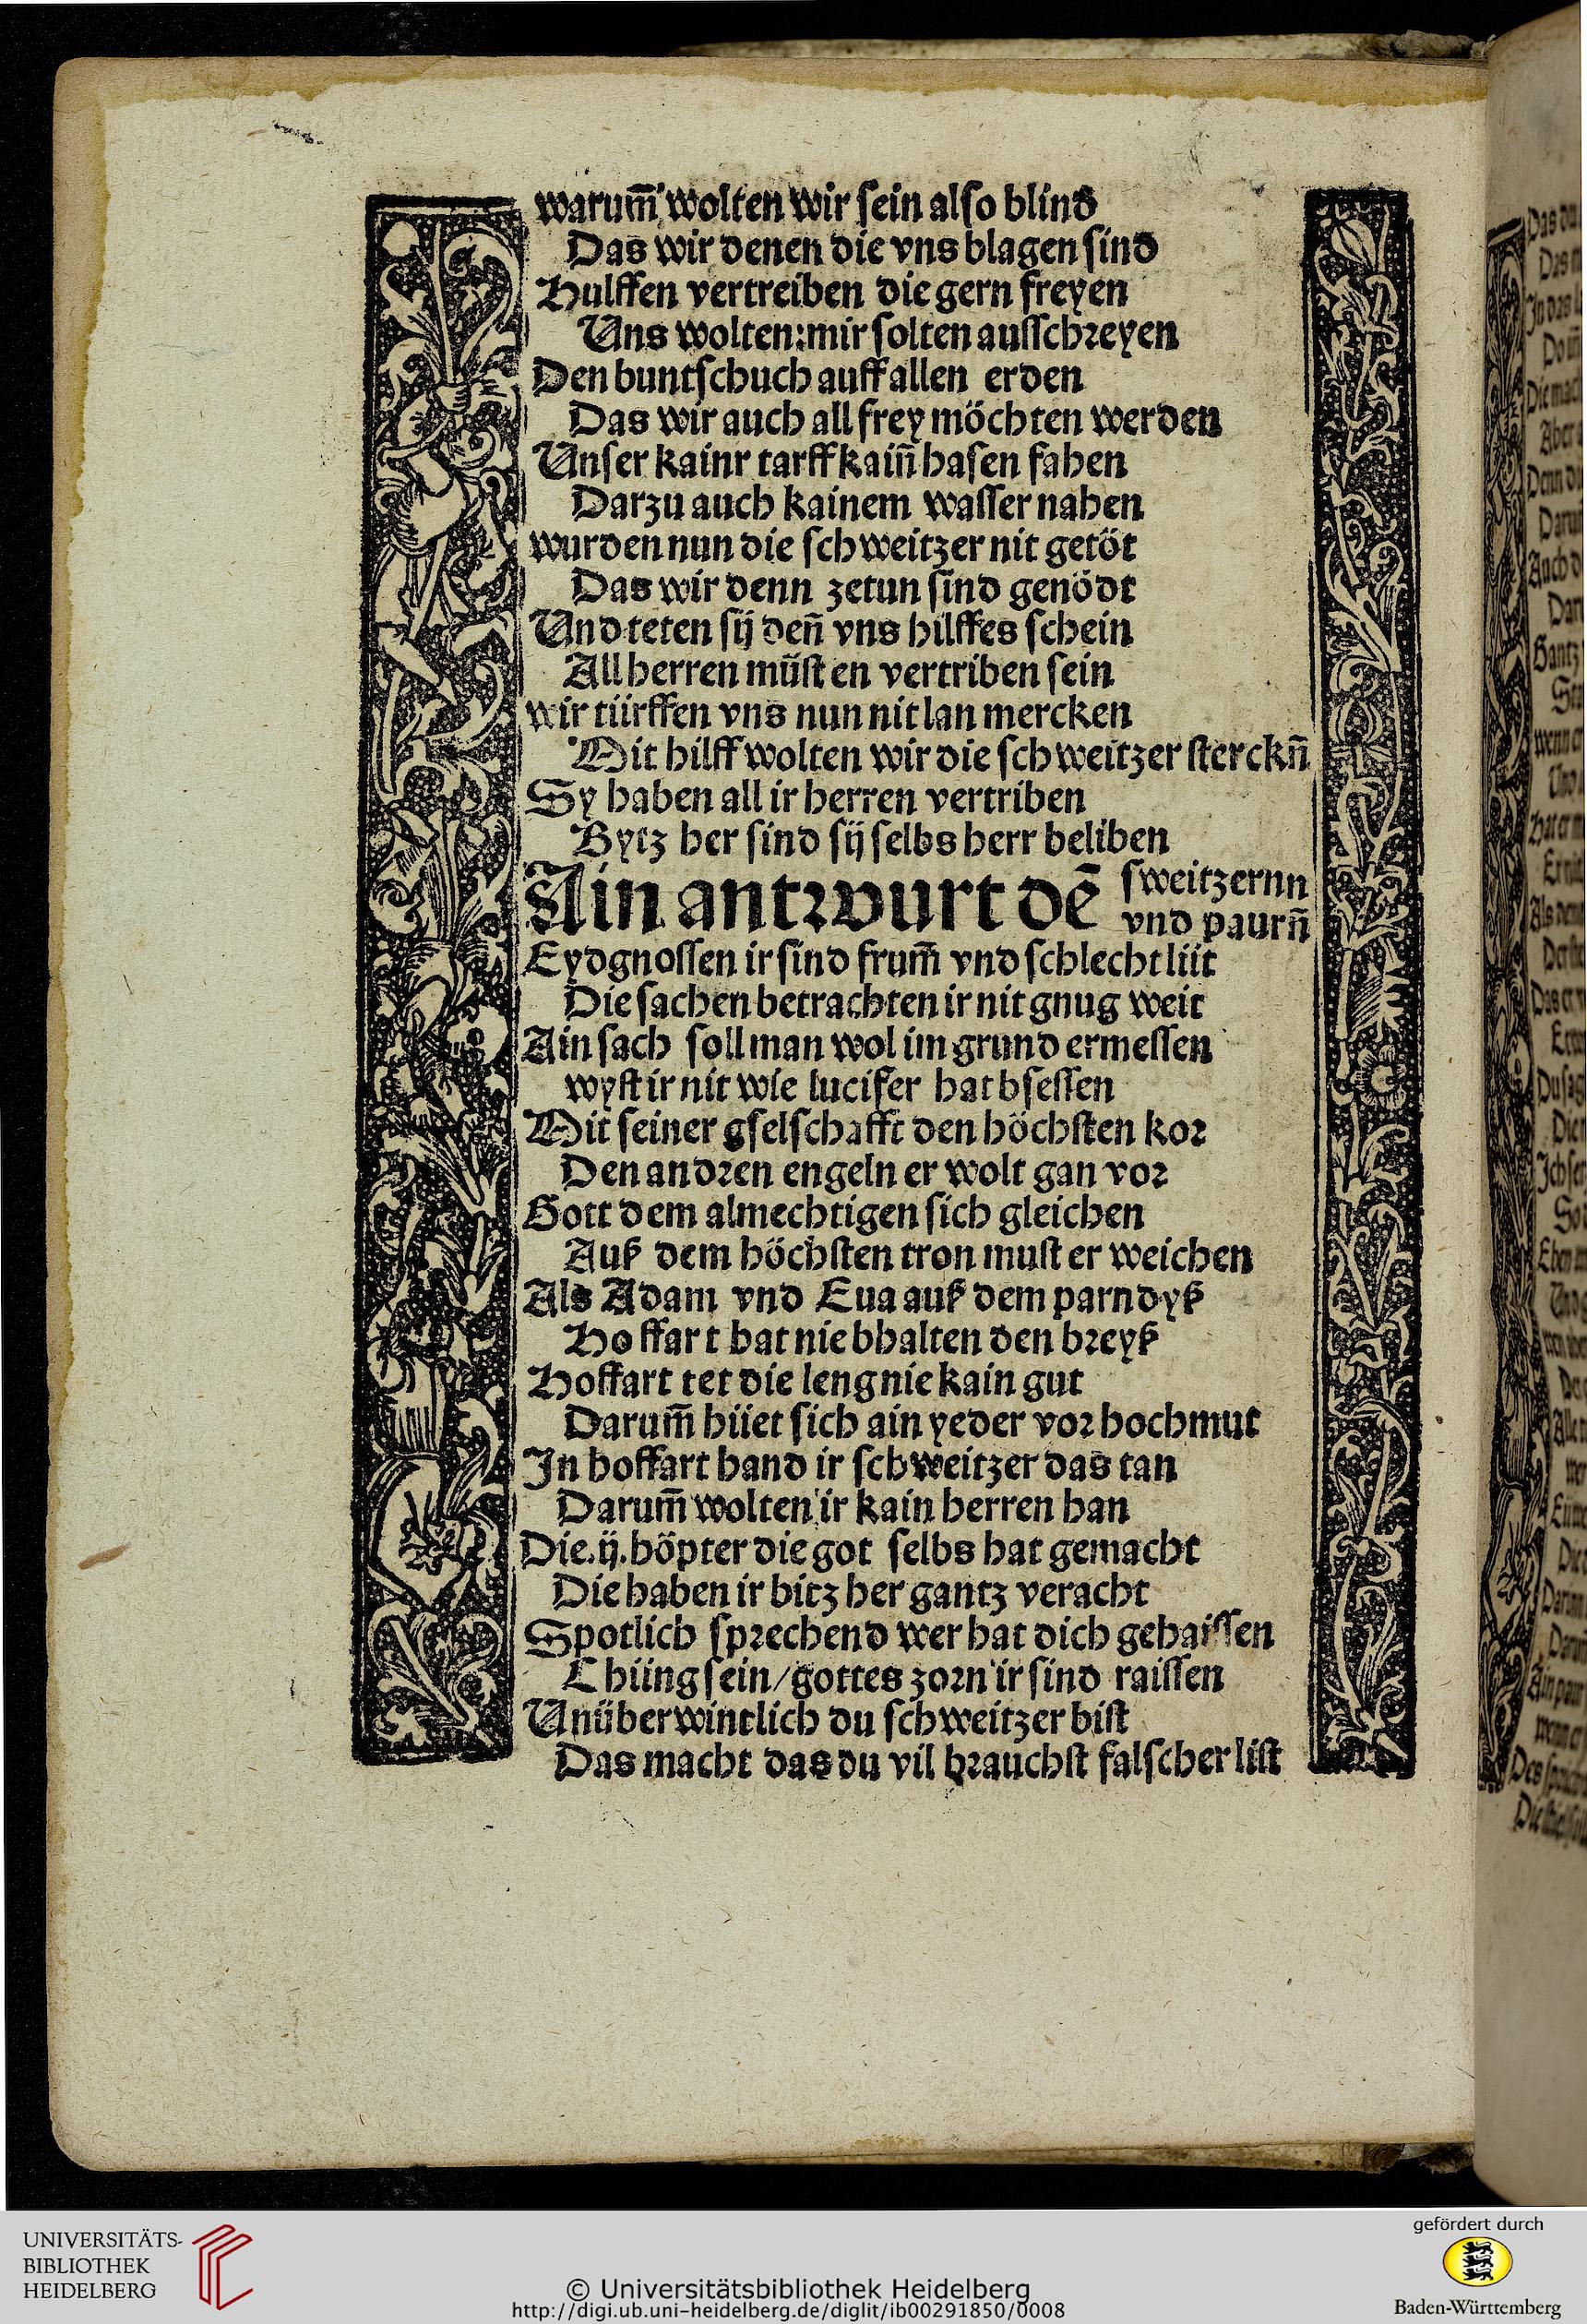 warum̄ wolten wir ſein alſo blind
Das wir denen die vns blagen ſind
Hulffen vertreiben die gern freyen
Uns wolten: mir ſolten auſſchꝛeyen
Den buntſchuch auff allen erden
Das wir auch all frey möchten werden
Unſer kainr tarff kain̄ haſen fahen
Darzu auch kainem waſſer nahen
wurden nun die ſchweitzer nit getöt
Das wir denn zetun ſind genödt
Und teten ſij den̄ vns hilffes ſchein
All herren müſten vertriben ſein
wir türffen vns nun nit lan mercken
Mit hilff wolten wir die ſchweitzer ſterckn̄
Sy haben all ir herren vertriben
Bytz her ſind ſij ſelbs herr beliben
Ain antwurt dē ſweitzernn
vnd paurn̄
Eydgnoſſen ir ſind frum̄ vnd ſchlecht lüt
Die ſachen betrachten ir nit gnug weit
Ain ſach ſoll man wol im grund ermeſſen
wyſt ir nit wie lucifer hat bſeſſen
Mit ſeiner gſelſchafft den höchſten koꝛ
Den andꝛen engeln er wolt gan voꝛ
Gott dem almechtigen ſich gleichen
Auß dem höchſten tron muſt er weichen
Als Adam vnd Eua auß dem parndyß
Hoffart hat nie bhalten den bꝛeyß
Hoffart tet die leng nie kain gut
Darum̄ hüet ſich ain yeder voꝛ hochmut
In hoffart hand ir ſchweitzer das tan
Darum̄ wolten ir kain herren han
Die .ij. höpter die got ſelbs hat gemacht
Die haben ir bitz her gantz veracht
Spotlich ſpꝛechend wer hat dich gehaiſſen
Chüng ſein/ gottes zoꝛn ir ſind raiſſen
Unüberwintlich du ſchweitzer biſt
Das macht das du vil bꝛauchſt falſcher liſt
UNIVERSITÄTS-
BIBLIOTHEK
HEIDELBERG
© Universitätsbibliothek Heidelberg
http://digi.ub.uni-heidelberg.de/diglit/ib00291850/0008
gefördert durch
Baden-Württemberg